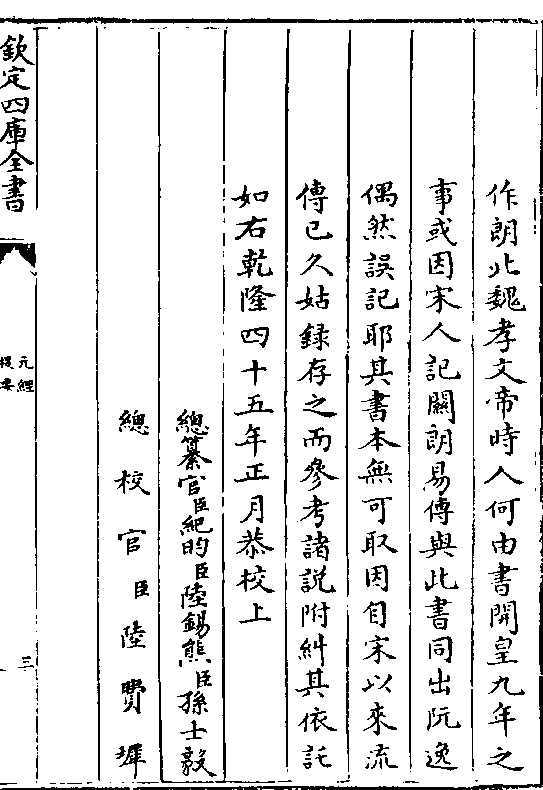 作朗北魏孝文帝時人何由書開皇九年之
事或因宋人記關朗易傳與此書同出阮逸
偶然誤記耶其書本無可取因自宋以來流
傳已久姑録存之而參考諸説附糾其依託
如右乾隆四十五年正月恭校上
總纂官臣紀昀臣陸錫熊臣孫士毅
總校官臣陸費墀
欽定四庫全書
元經
提要
三